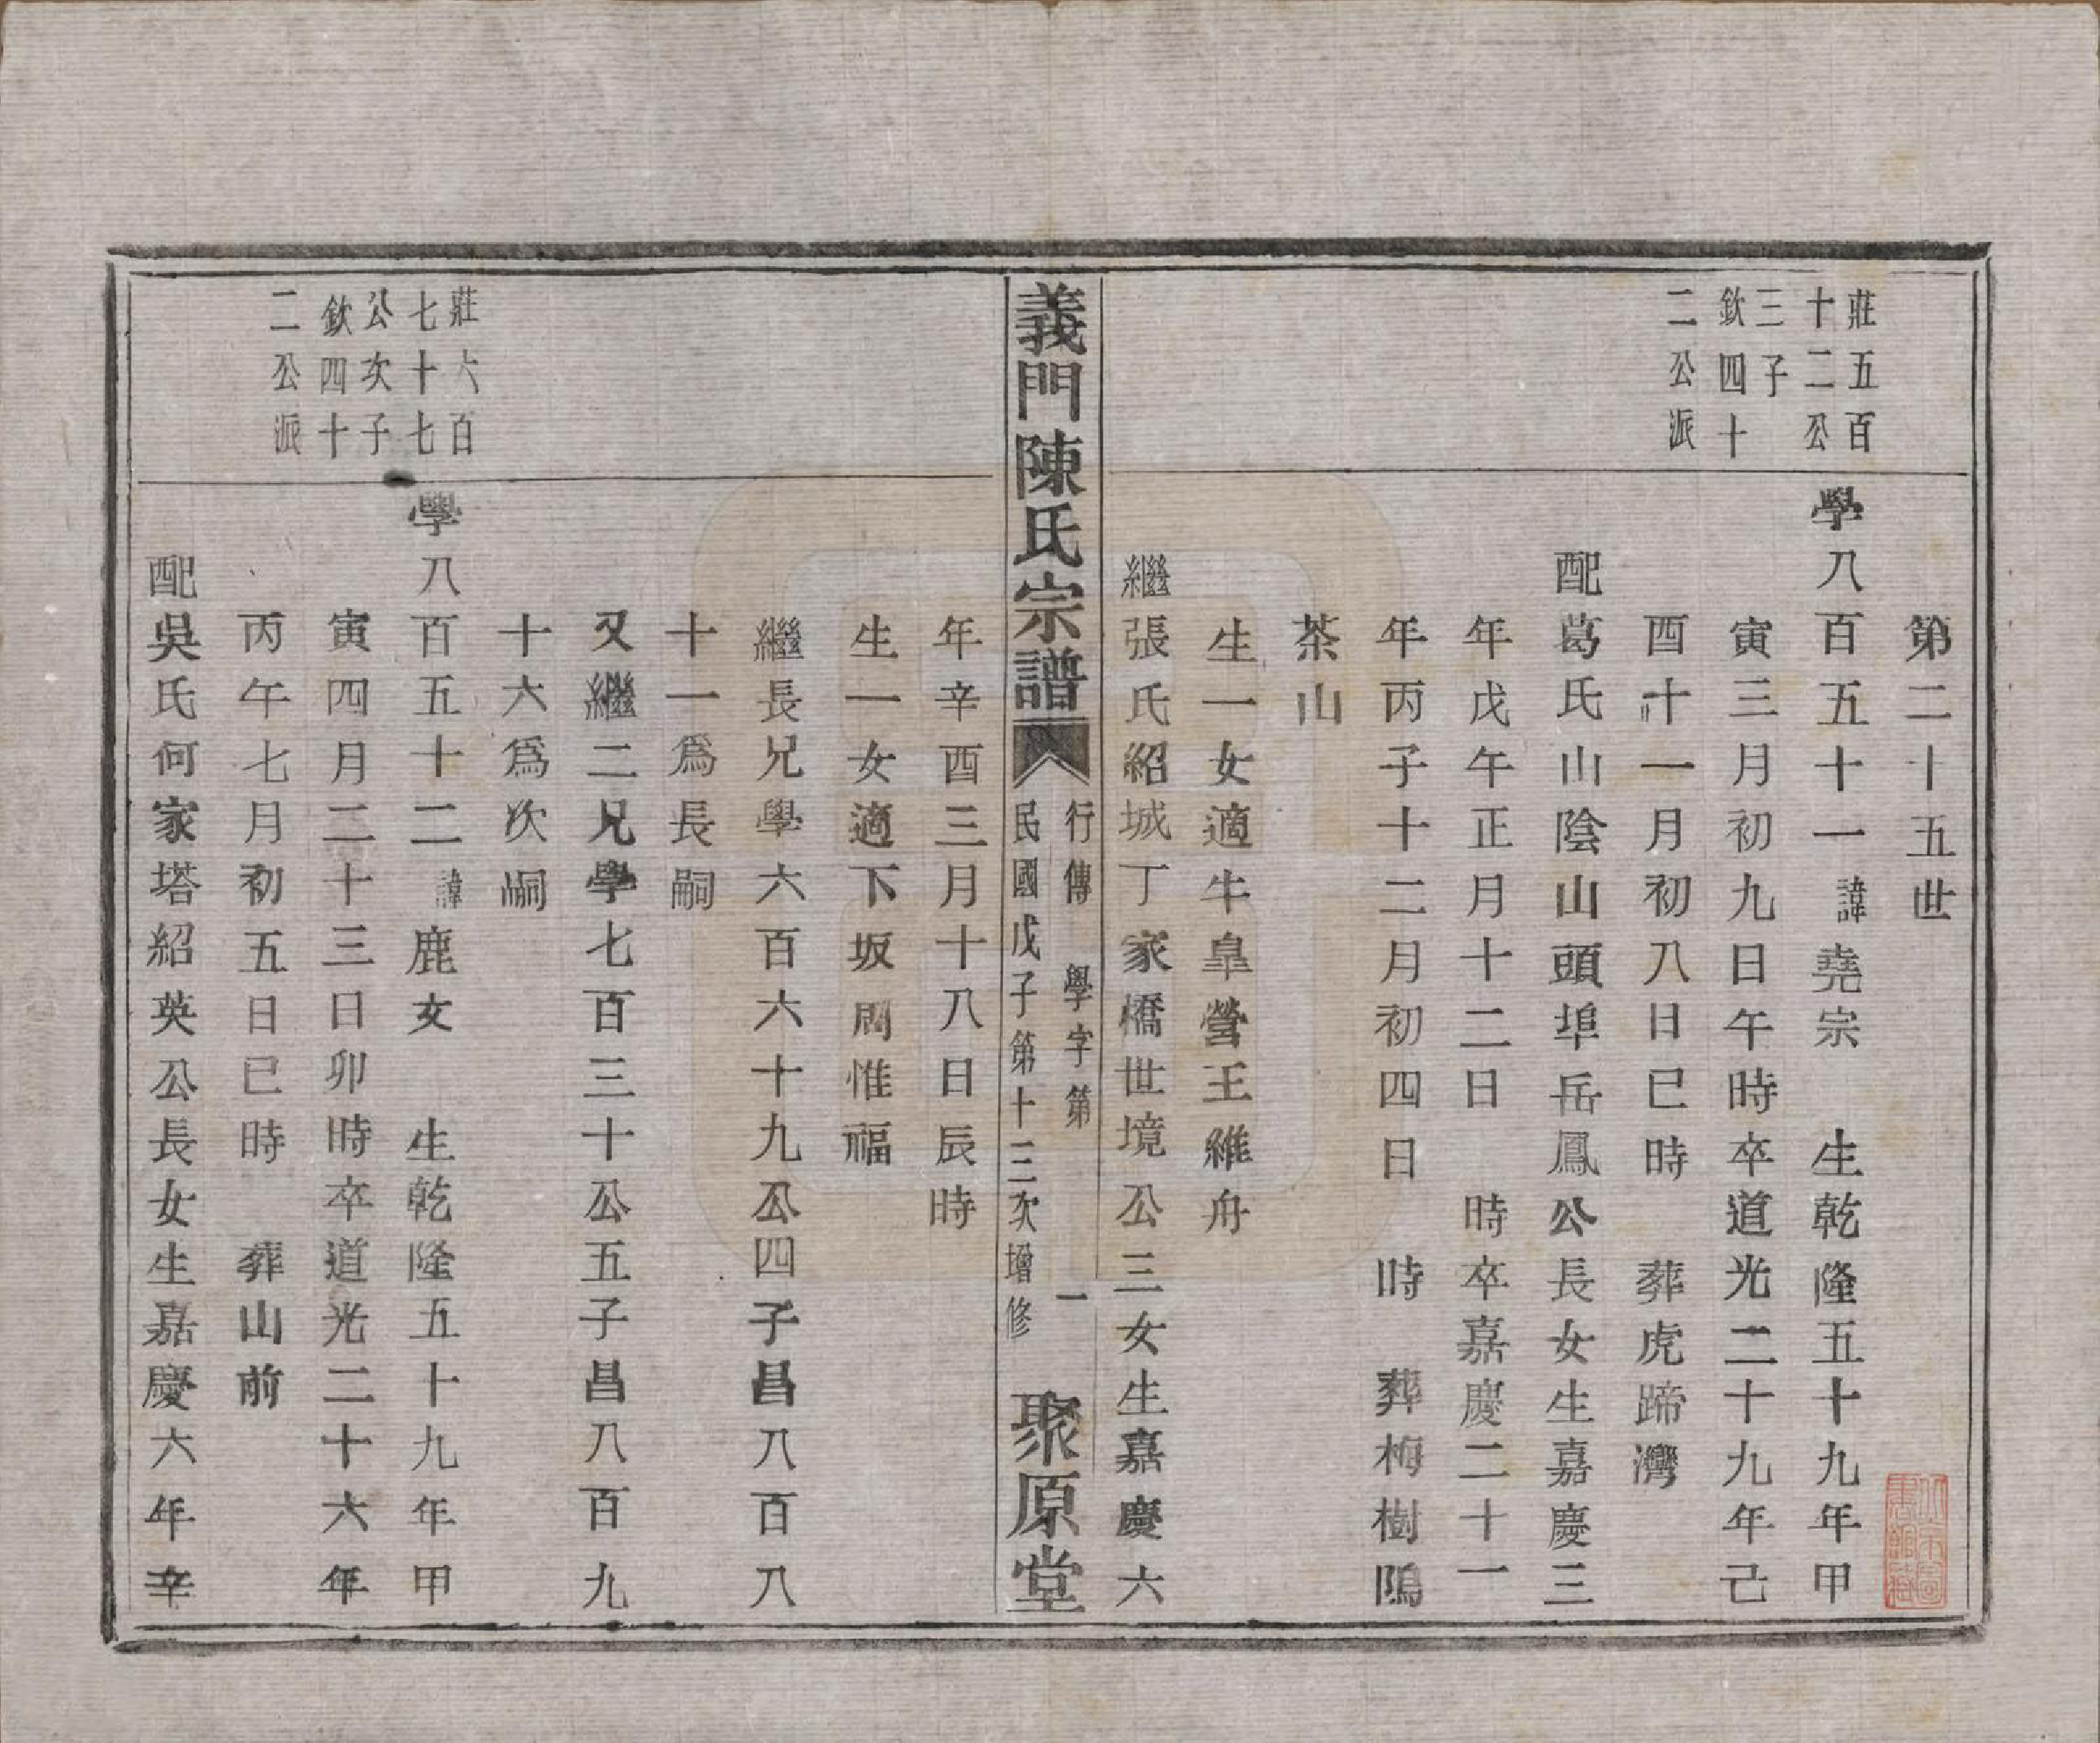 第二十五世
莊五百
十二公
三子
欽四十
二公派
學八百五十一諱堯宗 生乾隆五十九年甲
寅三月初九日午時卒道光二十九年己
酉十一月初八日巳時 葬虎蹄灣
配葛氏山陰山頭埠岳鳳公長女生嘉慶三
年戊午正月十二日 時卒嘉慶二十一
年丙子十二月初四日 時 葬梅樹隖
茶山
生一女適牛皐營王維舟
繼張氏紹城丁家橋世境公三女生嘉慶六
義門陳氏宗譜
行傳 學字第 一
民國戊子第十三次增修
聚原堂
年辛酉三月十八日辰時
生一女適下坂周惟福
繼長兄學六百六十九公四子昌八百八
十一爲長嗣
又繼二兄學七百三十公五子昌八百九
十六爲次嗣
莊六百
七十七
公次子
欽四十
二公派
學八百五十二諱鹿女 生乾隆五十九年甲
寅四月二十三日卯時卒道光二十六年
丙午七月初五日巳時 葬山前
配吳氏何家塔紹英公長女生嘉慶六年辛